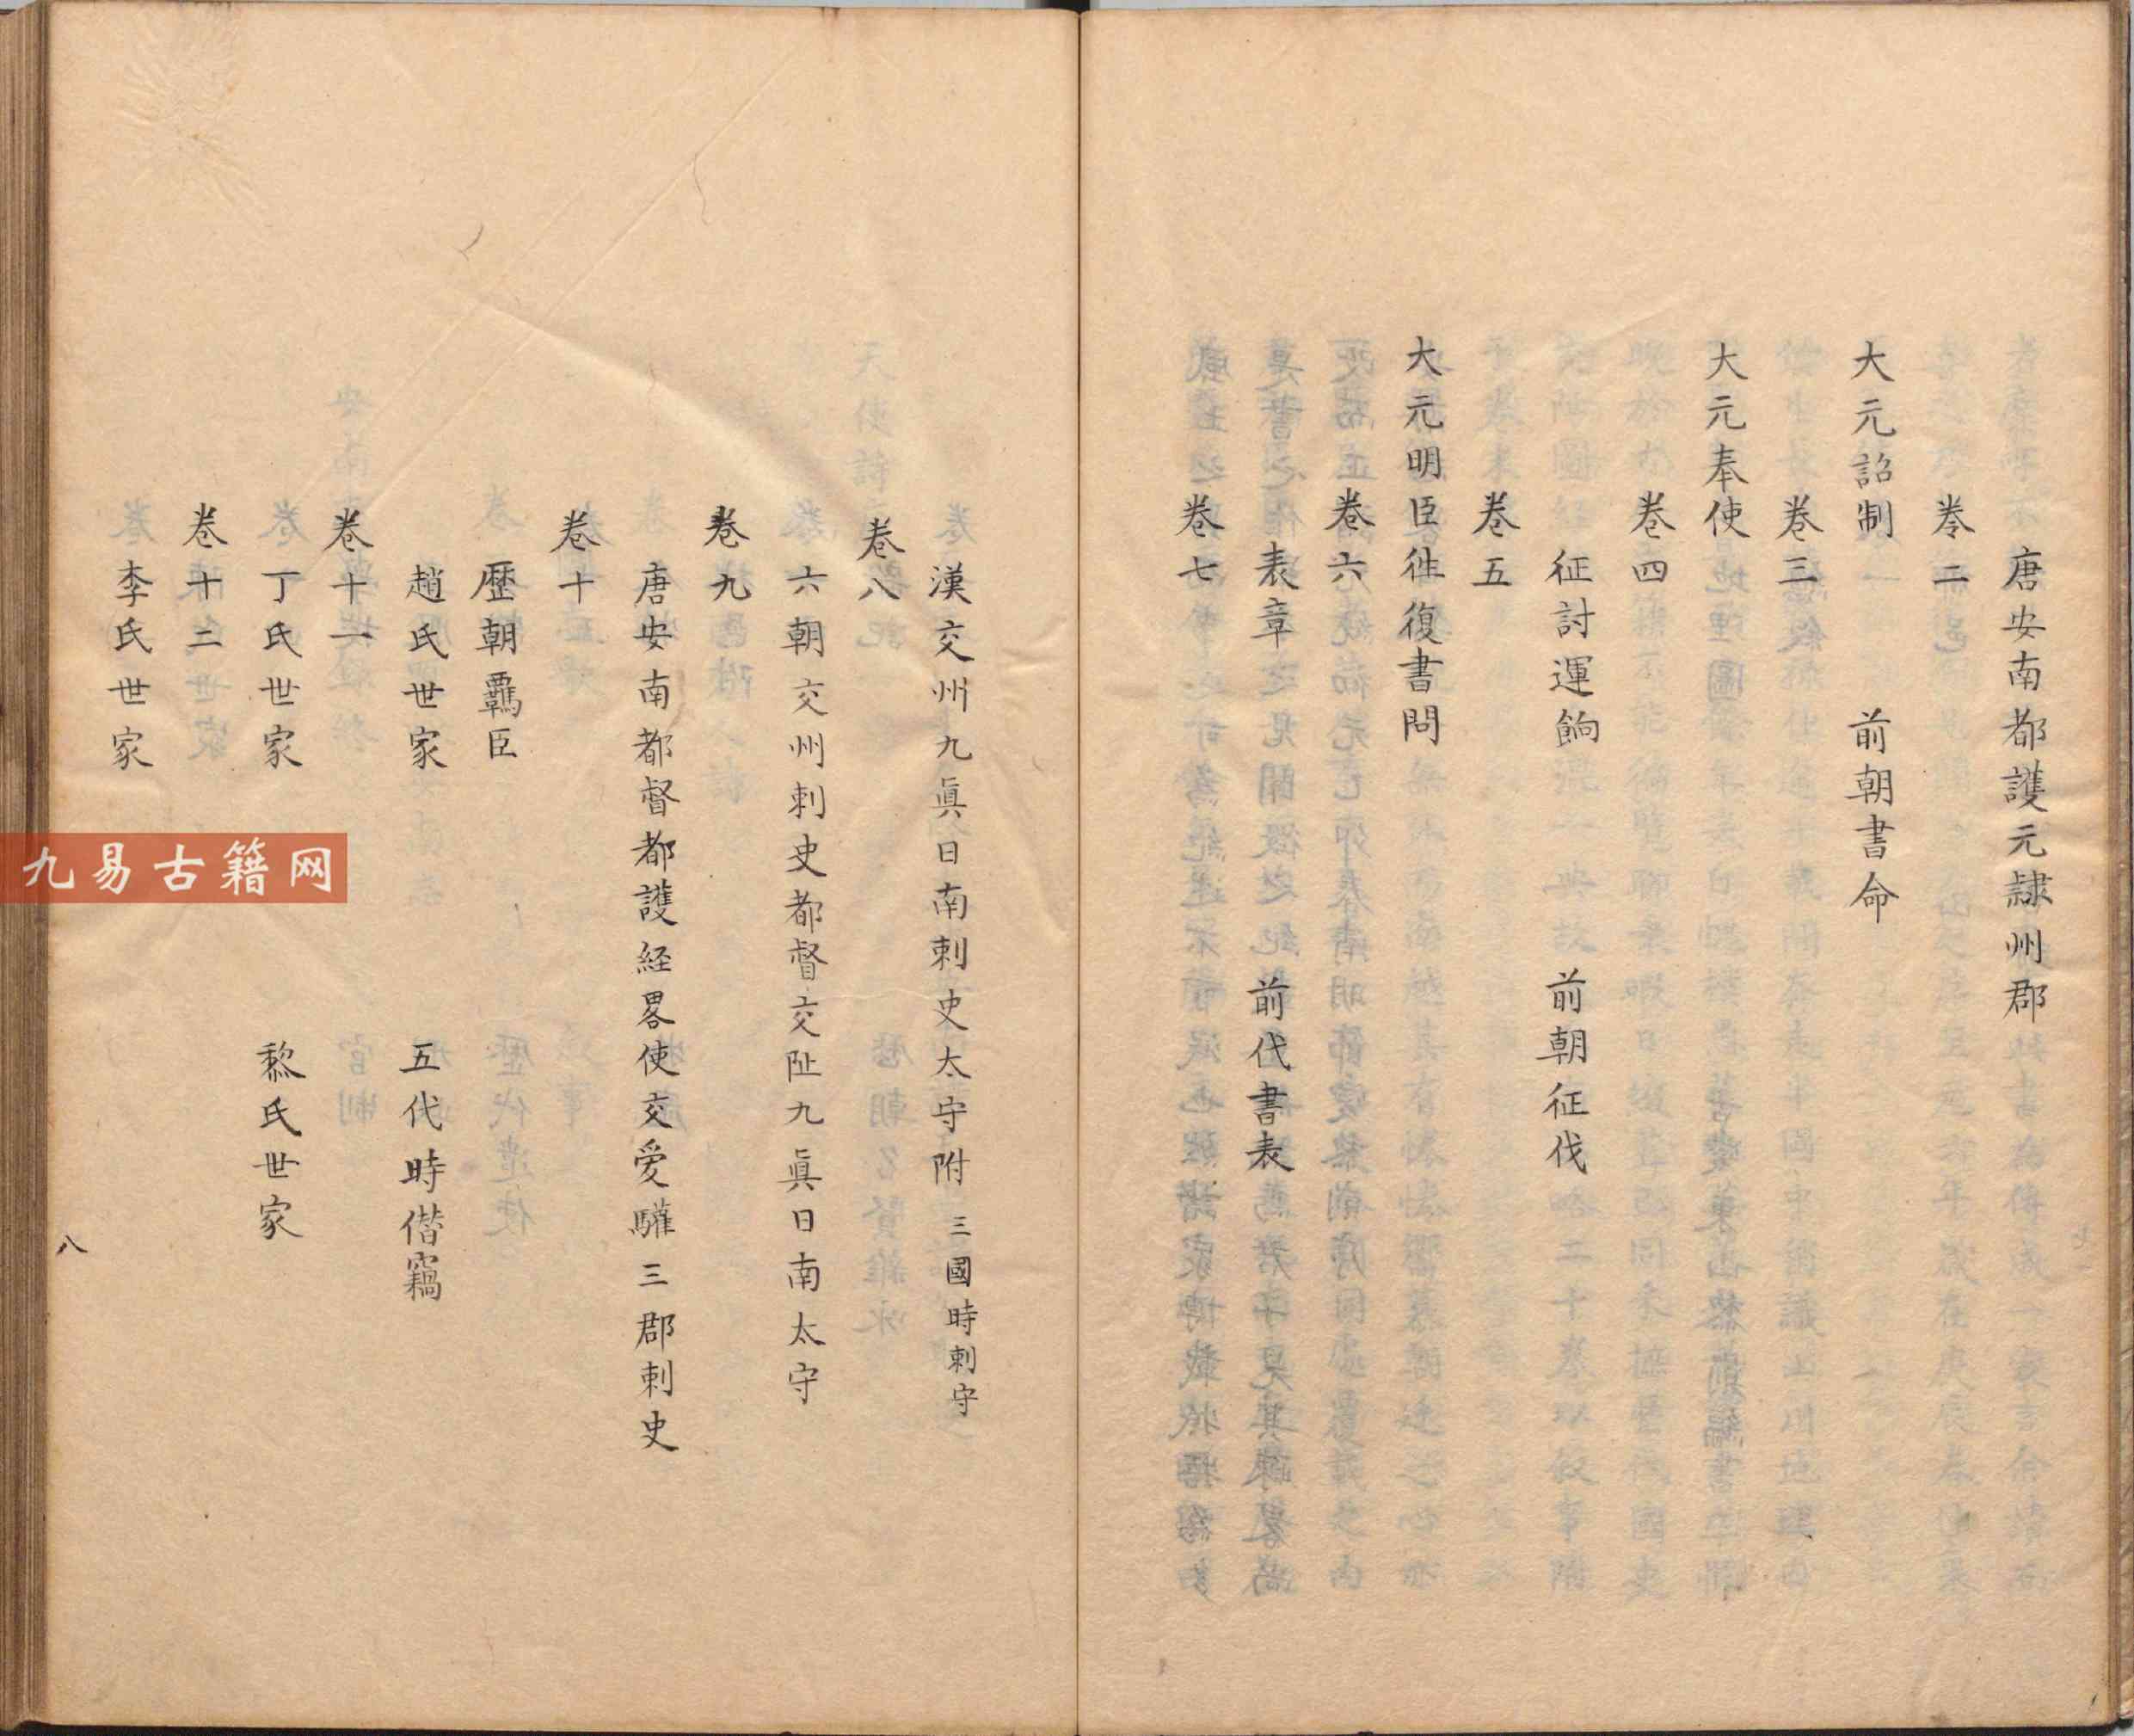 唐安南都護元隷州郡
卷二
大元詔制 前朝書命
卷三
大元奉使
卷四
征討運餉 前朝征伐
卷五
大元明臣徃復書問
卷六
表章 前代書表
卷七
漢交州九眞日南刺史太守附 三國時刺守
卷八
六朝交州刺史都督交阯九眞日南太守
卷九
唐安南都督都護経畧使交愛驩三郡刺史
卷十
歷朝羈臣
趙氏世家 五代時僣竊
卷十一
丁氏世家 黎氏世家
卷十二
李氏世家
八
九易古籍网